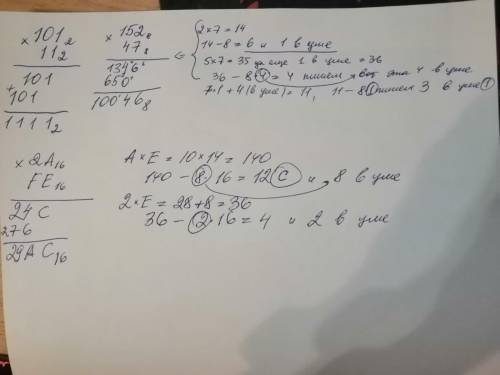 × 101₂
11₂
101
+ 101
1111₂
× 152₈
47₈
1346
650
10046₈
2×7=14
14-8=6 и 1 в уме
5×7=35 да еще 1 в уме = 36
36-8·4=4 пишем 4 в уме
7·1+4(в уме)=11, 11-8·1 пишем 3 в уме 1
× 2A₁₆
FE₁₆
24C
276
29AC₁₆
A×E=10×14=140
140-8·16=12 C и 8 в уме
2×E=28+8=36
36-2·16=4 и 2 в уме